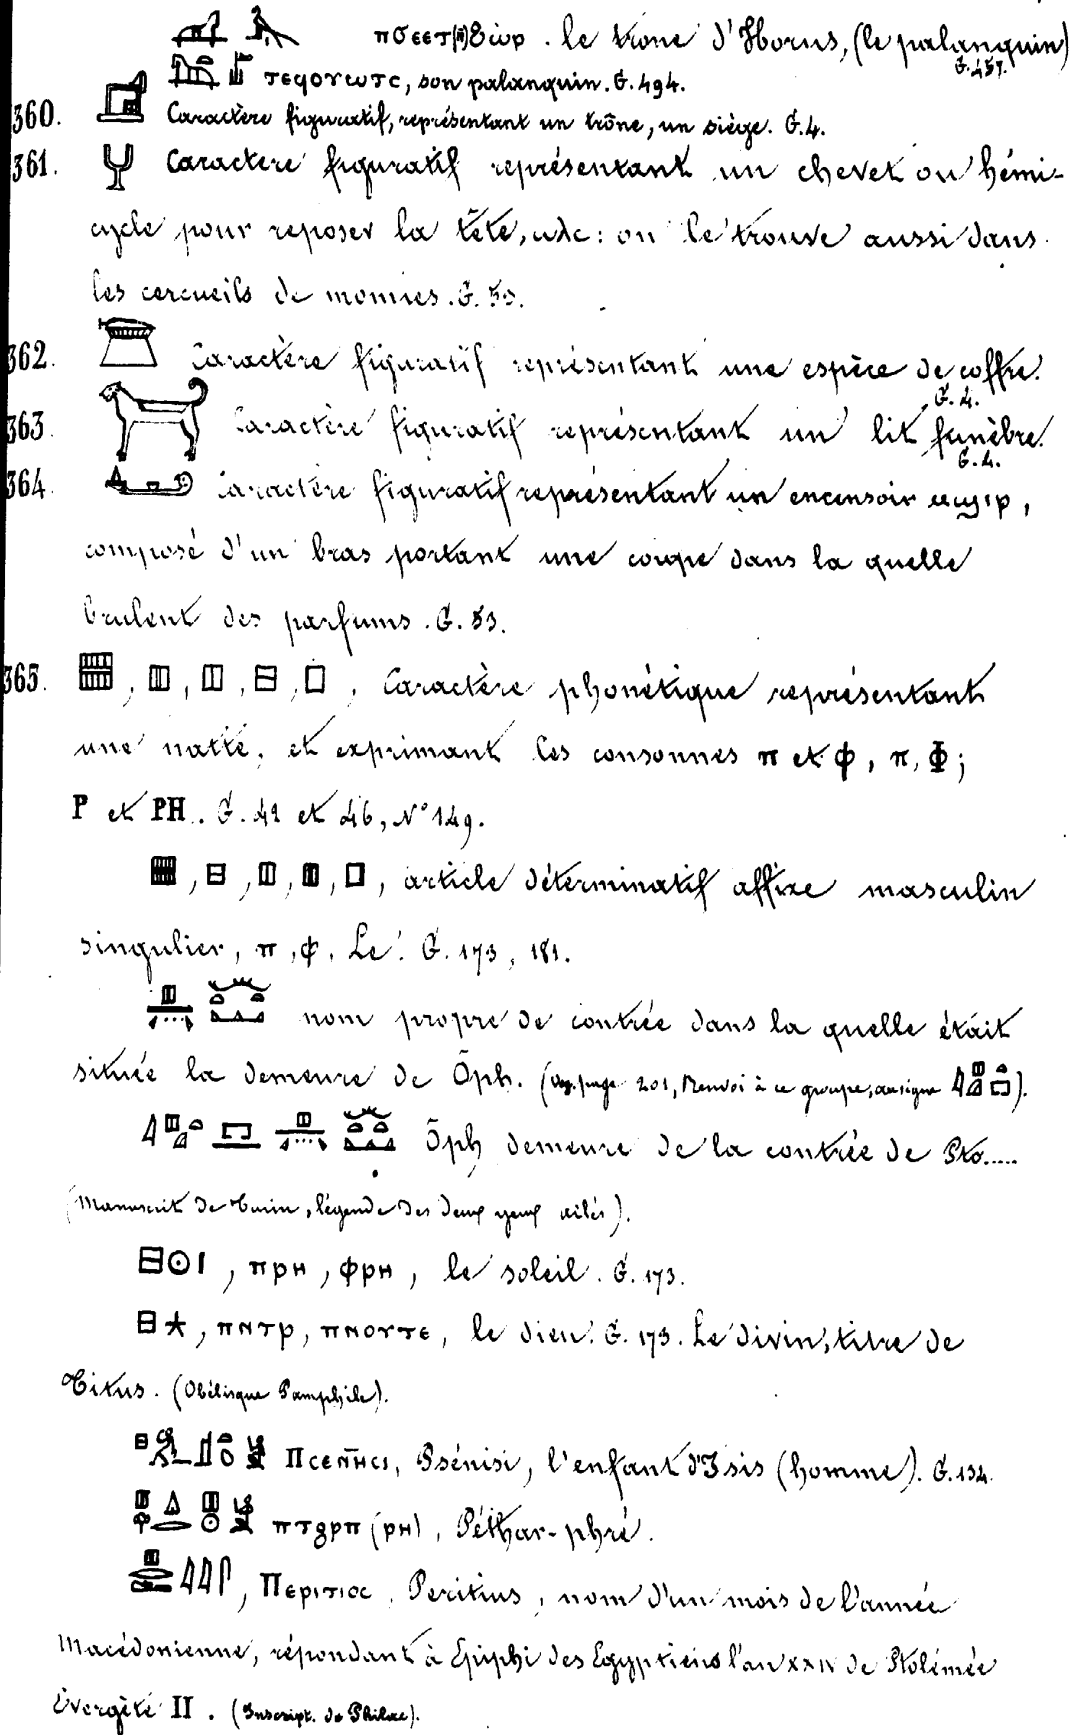 ⲡϭⲉⲉⲧ(ⲛ)ϩⲱⲣ. le trône d'Horus, (le palanquin)
G. 457.
ⲧⲉϥⲟⲩⲱⲧⲥ, son palanquin. G. 494.
360. Caractère figuratif, représentant un trône, un siège. G. 4.
361. Caractère figuratif représentant un chevet ou hémi-
cycle pour reposer la tête, : on le trouve aussi dans
les cercueils de momies. G.
362. Caractère figuratif représentant une espèce de coffre.
G. 4.
363. Caractère figuratif représentant un lit funèbre.
G. 4.
364. Caractère figuratif représentant un encensoir ϣⲏⲣ,
composé d'un bras portant une coupe dans la quelle
brulent des parfums. G. 53.
365. , , , , , Caractère phonétique représentant
une natte, et exprimant les consonnes ⲡ et ⲫ, π, Φ;
P et PH. G. 42 et 46, N° 149.
, , , , , article déterminatif affixe masculin
singulier, ⲡ, ⲫ, Le. G. 173, 181.
nom propre de contrée dans la quelle était
située la demeure de Ōph. (Voy. page 201, Renvoi à ce groupe, au signe ).
Ōph demeure de la contrée de Pto.....
(Manuscrit de Turin, légende des deux yeux ailés).
, ⲡⲣⲏ, ⲫⲣⲏ, le soleil. G. 173.
, ⲡⲛⲧⲣ, ⲡⲛⲟⲩⲧⲉ, le dieu. G. 173. Le divin, titre de
Titus. (Obélisque Pamphile).
Ⲡⲥⲉⲛⲏⲥⲓ, Psénisi, l'enfant d'Isis (homme). G. 134.
ⲡⲧϩⲣⲡ(ⲣⲏ), Péthar-phré.
, Ⲡⲉⲣⲓⲧⲓⲟⲥ, Peritius, nom d'un mois de l'année
Macédonienne, répondant à Epiphi des Egyptiens l'an XXIV de Ptolémée
Évergète II. (Inscript. de Philae).